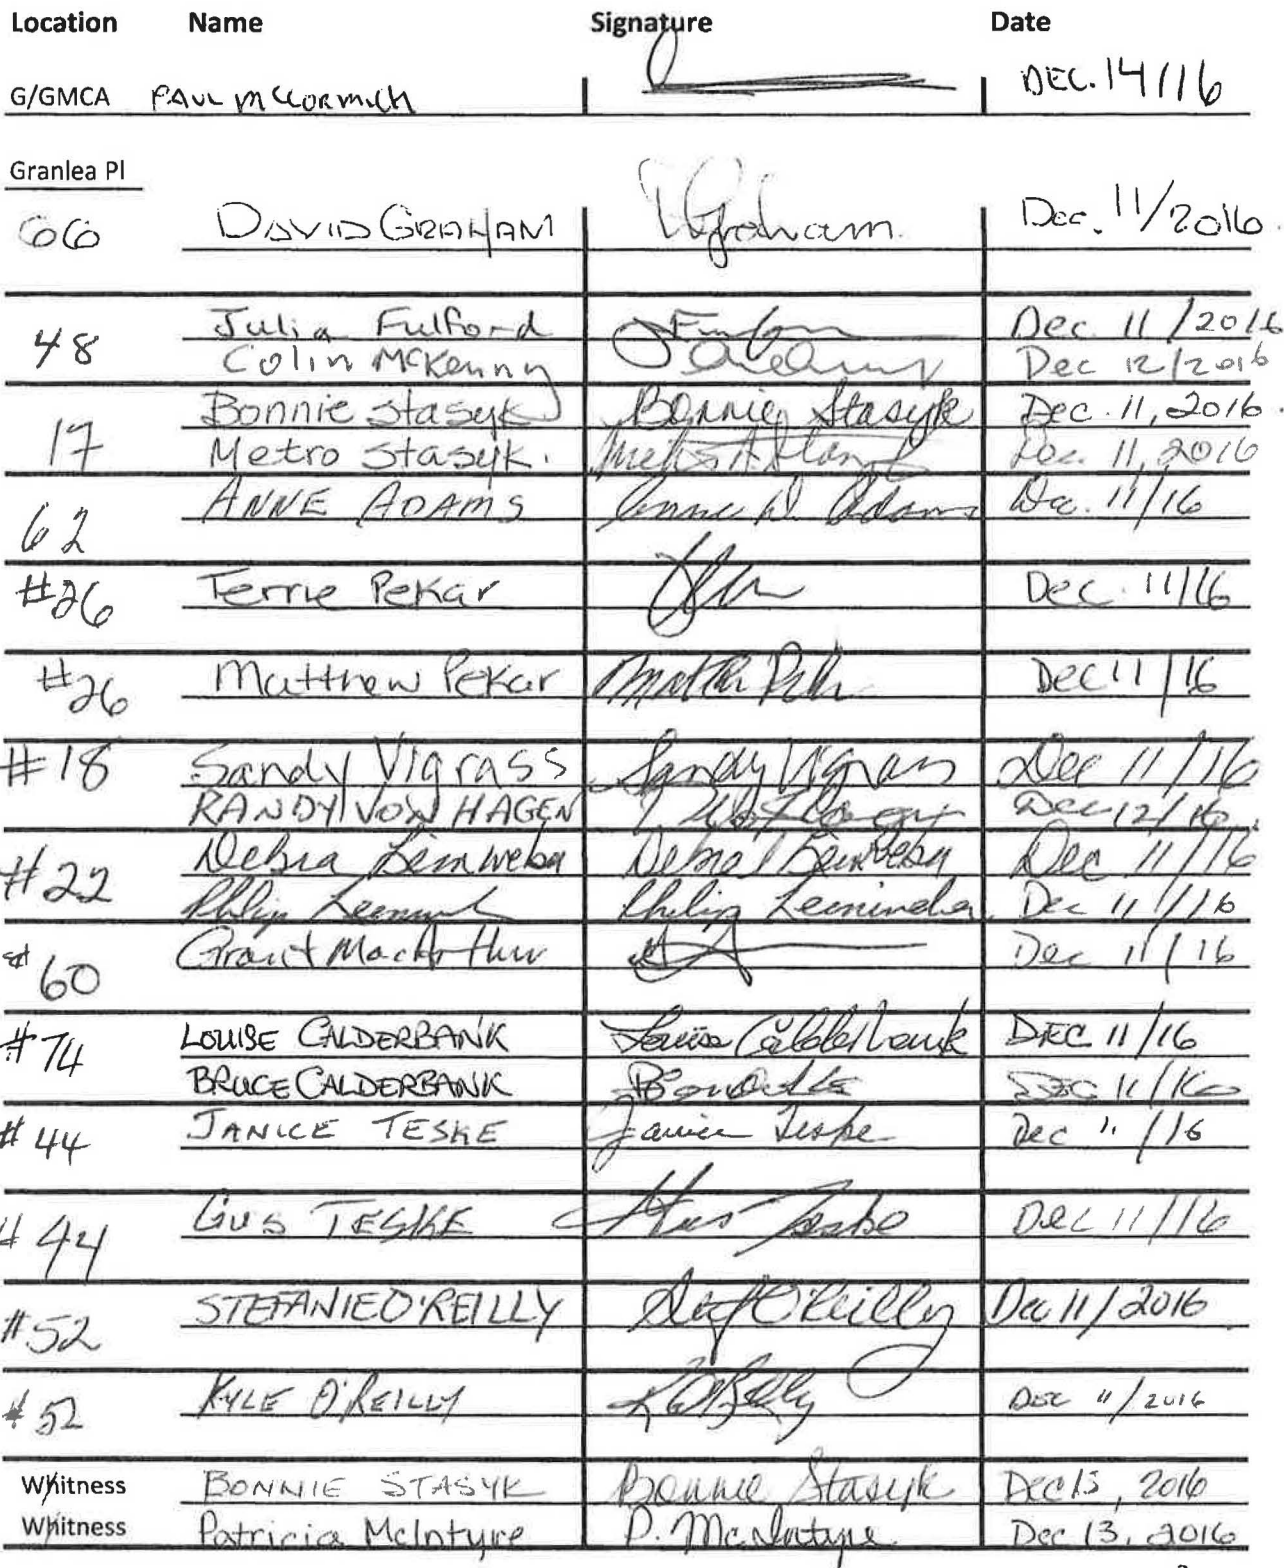 Location Name Signature Date
G/GMCA PAUL McCORMICK DEC. 14/16
Granlea Pl
66 DAVID GRAHAM Graham. Dec. 11/2016.
48 Julia Fulford Dec. 11/2016
Colin McKenny Dec 12/2016
17 Bonnie Stasyk Bonnie Stasyk Dec. 11, 2016.
Metro Stasyk. Dec. 11, 2016
62 ANNE ADAMS Anne D. Adams Dec. 11/16
#26 Terrie Pekar Dec. 11/16
#26 Matthew Pekar Dec 11/16
#18 Sandy Vigrass Sandy Vigrass Dec 11/16
RANDY VON HAGEN Dec 12/16
#22 Debra Dec 11/16
Philip Philip Dec 11/16
60 Grant MacArthur Dec 11/16
#74 LOUISE CALDERBANK Louise Calderbank DEC 11/16
BRUCE CALDERBANK DEC 11/16
#44 JANICE TESKE Janice Teske Dec 11/16
#44 GUS TESKE Gus Teske Dec 11/16
#52 STEFANIE O'REILLY Stef O'Reilly Dec 11/2016
#52 KYLE O'REILLY K O'Reilly DEC 11/2016
Whitness BONNIE STASYK Bonnie Stasyk Dec 13, 2016
Whitness Patricia McIntyre P. McIntyre Dec 13, 2016